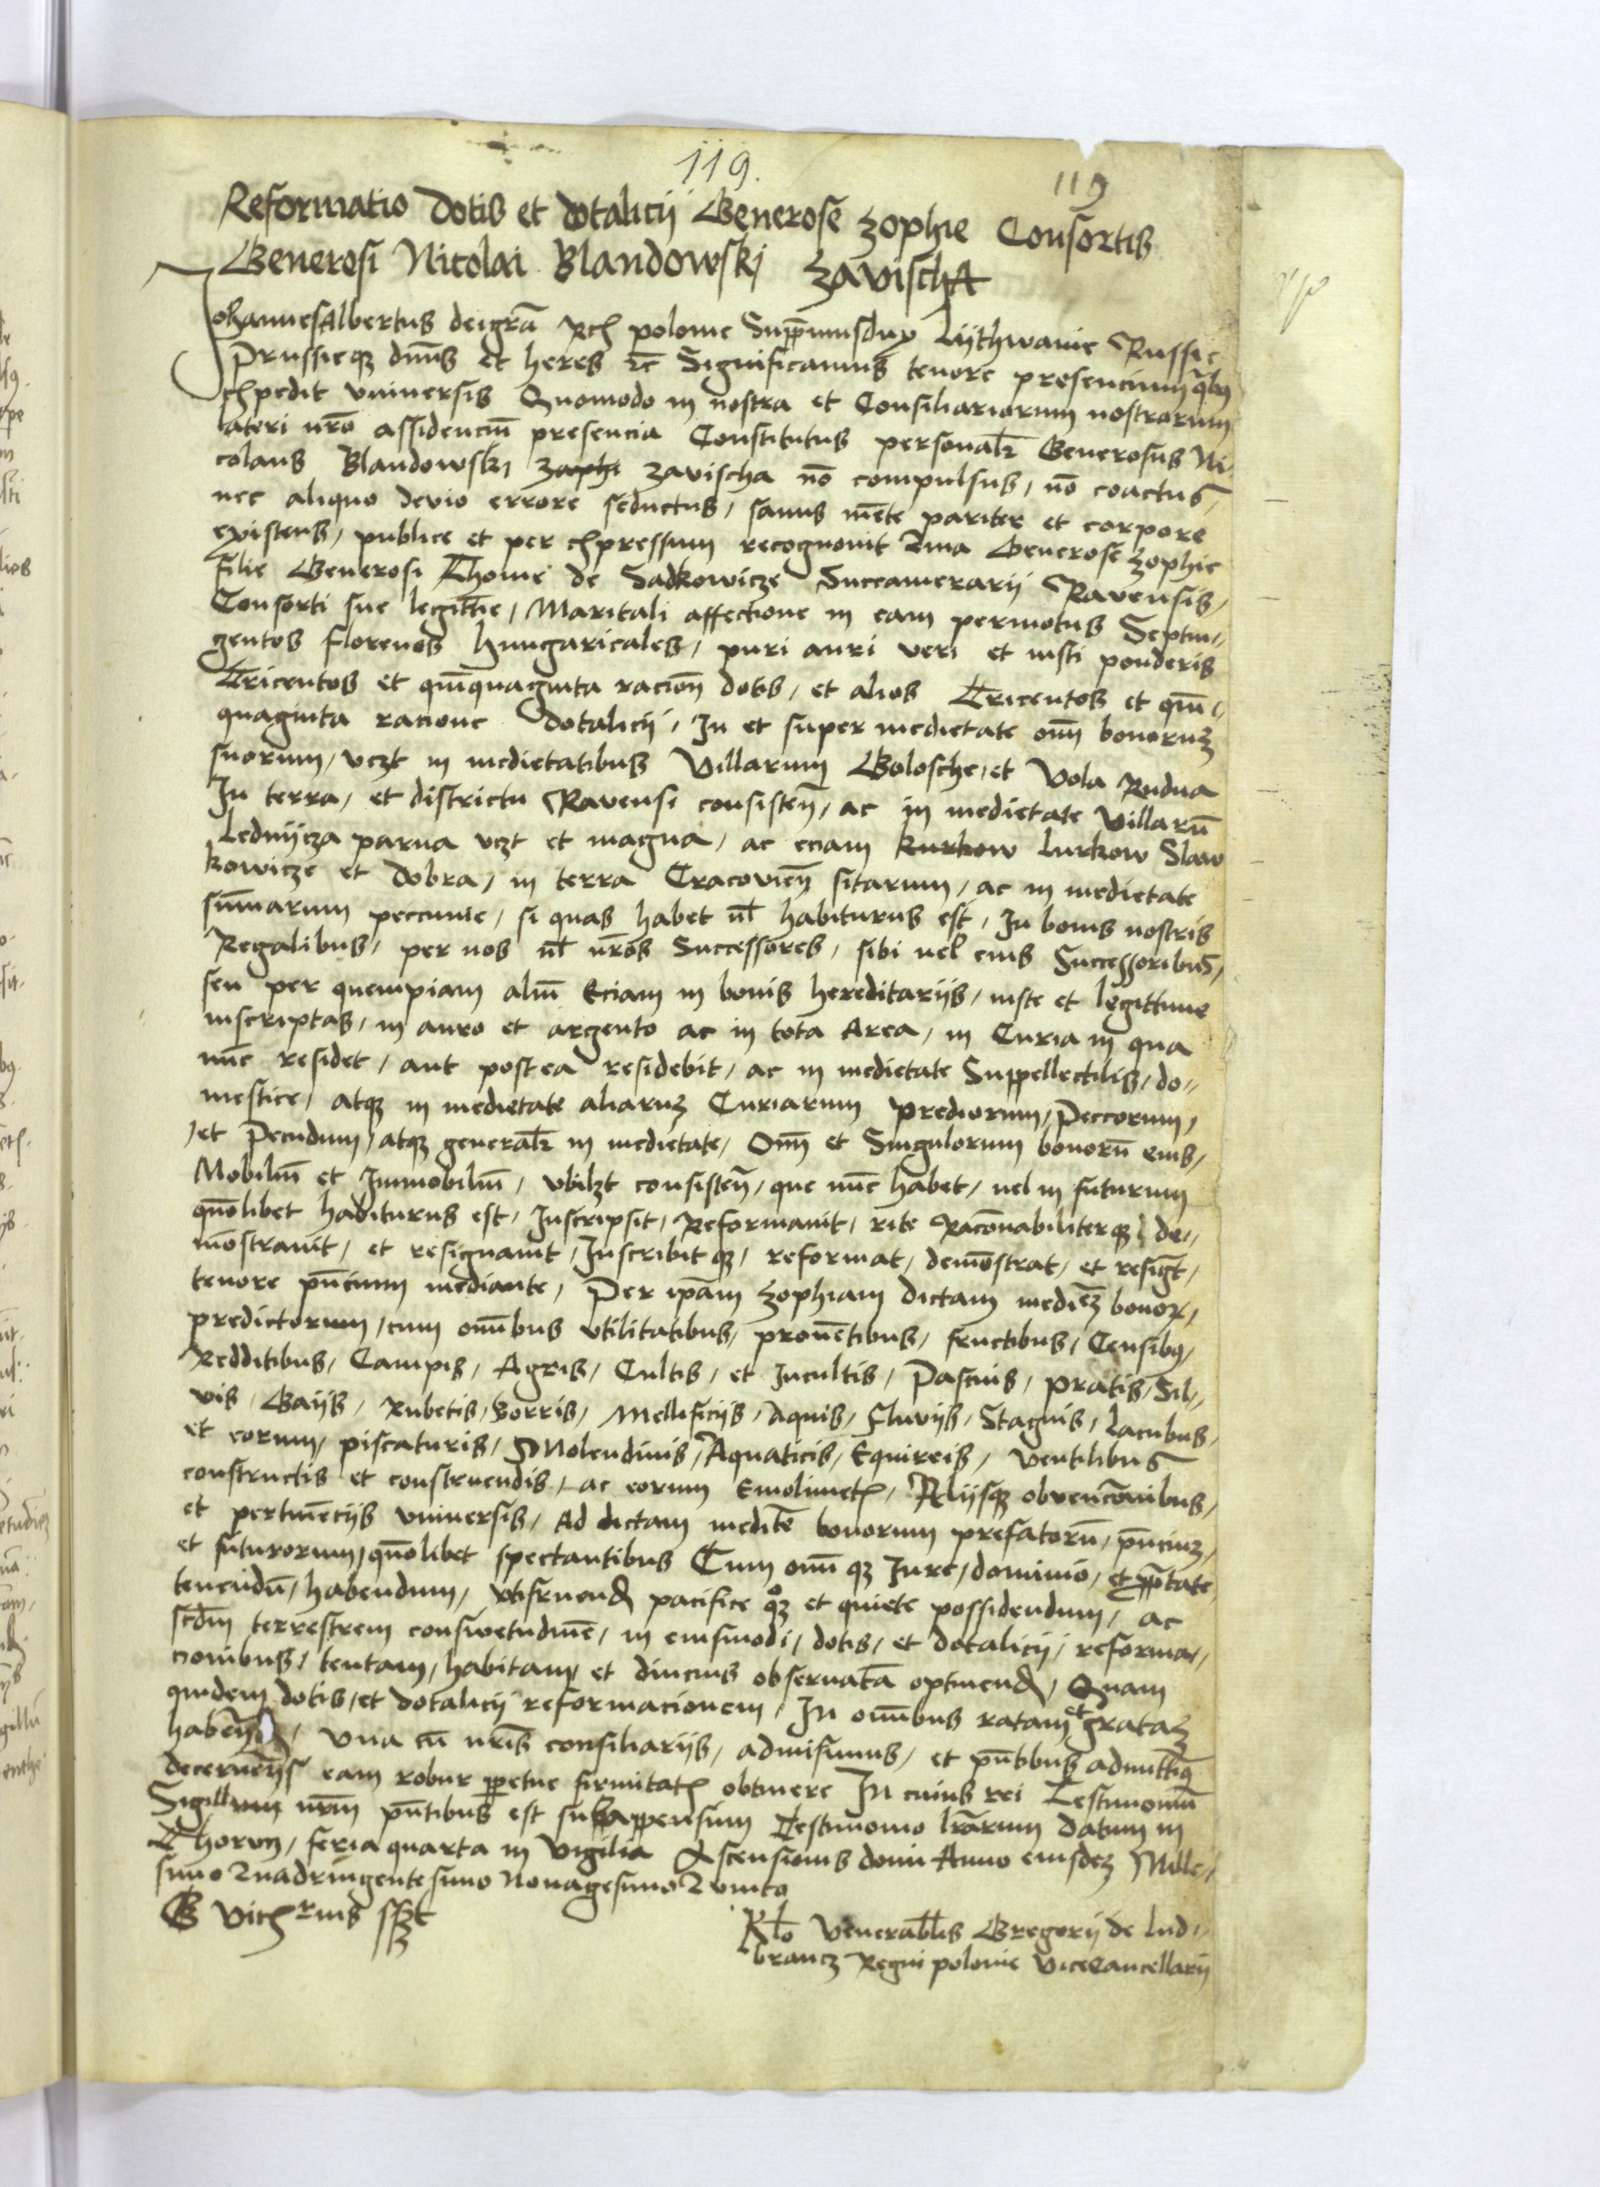 119.
119
Reformatio Dotis et dotalicij Generose Zophie Consortis
Generosi Nicolai Blandowskj Zavischa
Johannes Albertus dei gr̄a Rex polonie Supp̄mus dux Lijthwanie Russie
Prussieqꝫ dn̄us et heres ꝛc̄ Significamus tenore presencium qͥbꝰ
expedit vniuersis Quomodo in nostra et Consiliariorum nostrorum
lateri nr̄o assidenciū presencia Constitutus personalꝛ Generosus Ni-
colaus Blandowskj Zophi Zavischa nō compulsus, nō coactus,
nec aliquo devio errore seductus, sanus mēte pariter et corpore
existens, publice et per expressum recognouit Quia Generose Zophie
filie Generosi Thome de Sadkowicze Succamerarij Ravensis,
Consorti sue legittīe, Maritali affectione in eam permotus Septin-
gentos florenos hungaricales, puri auri veri et iusti ponderis
Tricentos et quīquaginta racioñ dotis, et alios Tricentos et quī-
quaginta racione dotalicij, In et super medietate om̄ bonoruꝫ
suorum, vczt in medietatibus Villarum Golosche, et Vola Rudna
In terra, et districtu Ravensi consisteñ, ac in medietate Villarū
Lednijcza parua vczt et magna, ac eciam kurkow lurkow Slaw
kowicze et Dobra, in terra Cracovieñ sitarum, ac in medietate
sūmarum peccunie, si quas habet ul̄ habiturus est, In bonis nostris
Regalibus, per nos ul̄ nr̄os Successores, sibi uel eius Successoribus,
seu per quempiam aliū Eciam in bonis hereditarijs, iuste et legittime
inscriptas, in auro et argento ac in tota Area, in Curia in qua
nūc residet, aut postea residebit, ac in medietate Suppellectilis, do-
mestice, atqꝫ in medietate aliaruꝫ Curiarum prediorum, Peccorum,
et Pecudum, atqꝫ generalꝛ in medietate, Om̄ et Singulorum bonorū eius,
Mobiliū et Immobiliū, vbilꝫt consisteñ, que nūc habet, uel in futurum
quōlibet habiturus est, Inscripsit, Reformauit, rite Racōnabiliterqꝫ de-
mōstrauit, et resignauit, Inscribitqꝫ, reformat, demōstrat, et resigt,
tenore pn̄cium mediante, Per ip̄am Zophiam dictam medieꝫ bonoꝝ,
predictorum, cum om̄ibus vtilitatibus, prouētibus, fructibus, Censibꝰ,
Redditibus, Campis, Agris, Cultis, et Incultis, Pascuis, pratis, Sil-
vis, Gaijs, Rubetis, Borris, Mellificijs, Aquis, fluvijs, Stagnis, lacubus,
et eorum, piscaturis, Molendinis, Aquaticis, Equireis, ventilibus
constructis et construendis, ac eorum Emolimetꝭ, Alijsqꝫ obvencōnibus,
et pertinēcijs vniuersis, Ad dictam medite bonorum prefatorū, pn̄ciuꝫ,
et futurorum, quōlibet spectantibus Cum om̄i qꝫ Iure, dominio, et ꝓp̄tate
tenendū, habendum, vtifruendꝭ pacifice qꝫ et quiete possidendum, ac
scd̄m terrestrem consuetudinē, in eiusmodi, dotis, et dotalicij, reforma-
cionibus, tentam, habitam, et diucius obseruatā optinendꝭ, Quam
quidem dotis, et dotalicij reformacionem, In om̄ibus ratam et grataꝫ
habeñ, Vna cū nr̄is consiliarijs, admisimus, et pn̄tibus admittimꝰ
decernētes eam robur ꝑpetue firmitatꝭ obtinere In cuius rei Testimoniū
Sigillum nr̄m pn̄tibus est subappensum Testimonio lr̄arum Datum in
Thorvn, feria quarta in Vigilia Ascensionis domi Anno eiusdeꝫ Mille-
simo Quadringentesimo Nonagesimo Quinto
G Vicꝭrius sszt
Rl̄o Venerabl̄is Gregorij de Lud-
brancz Regni polonie ViceCancellarij